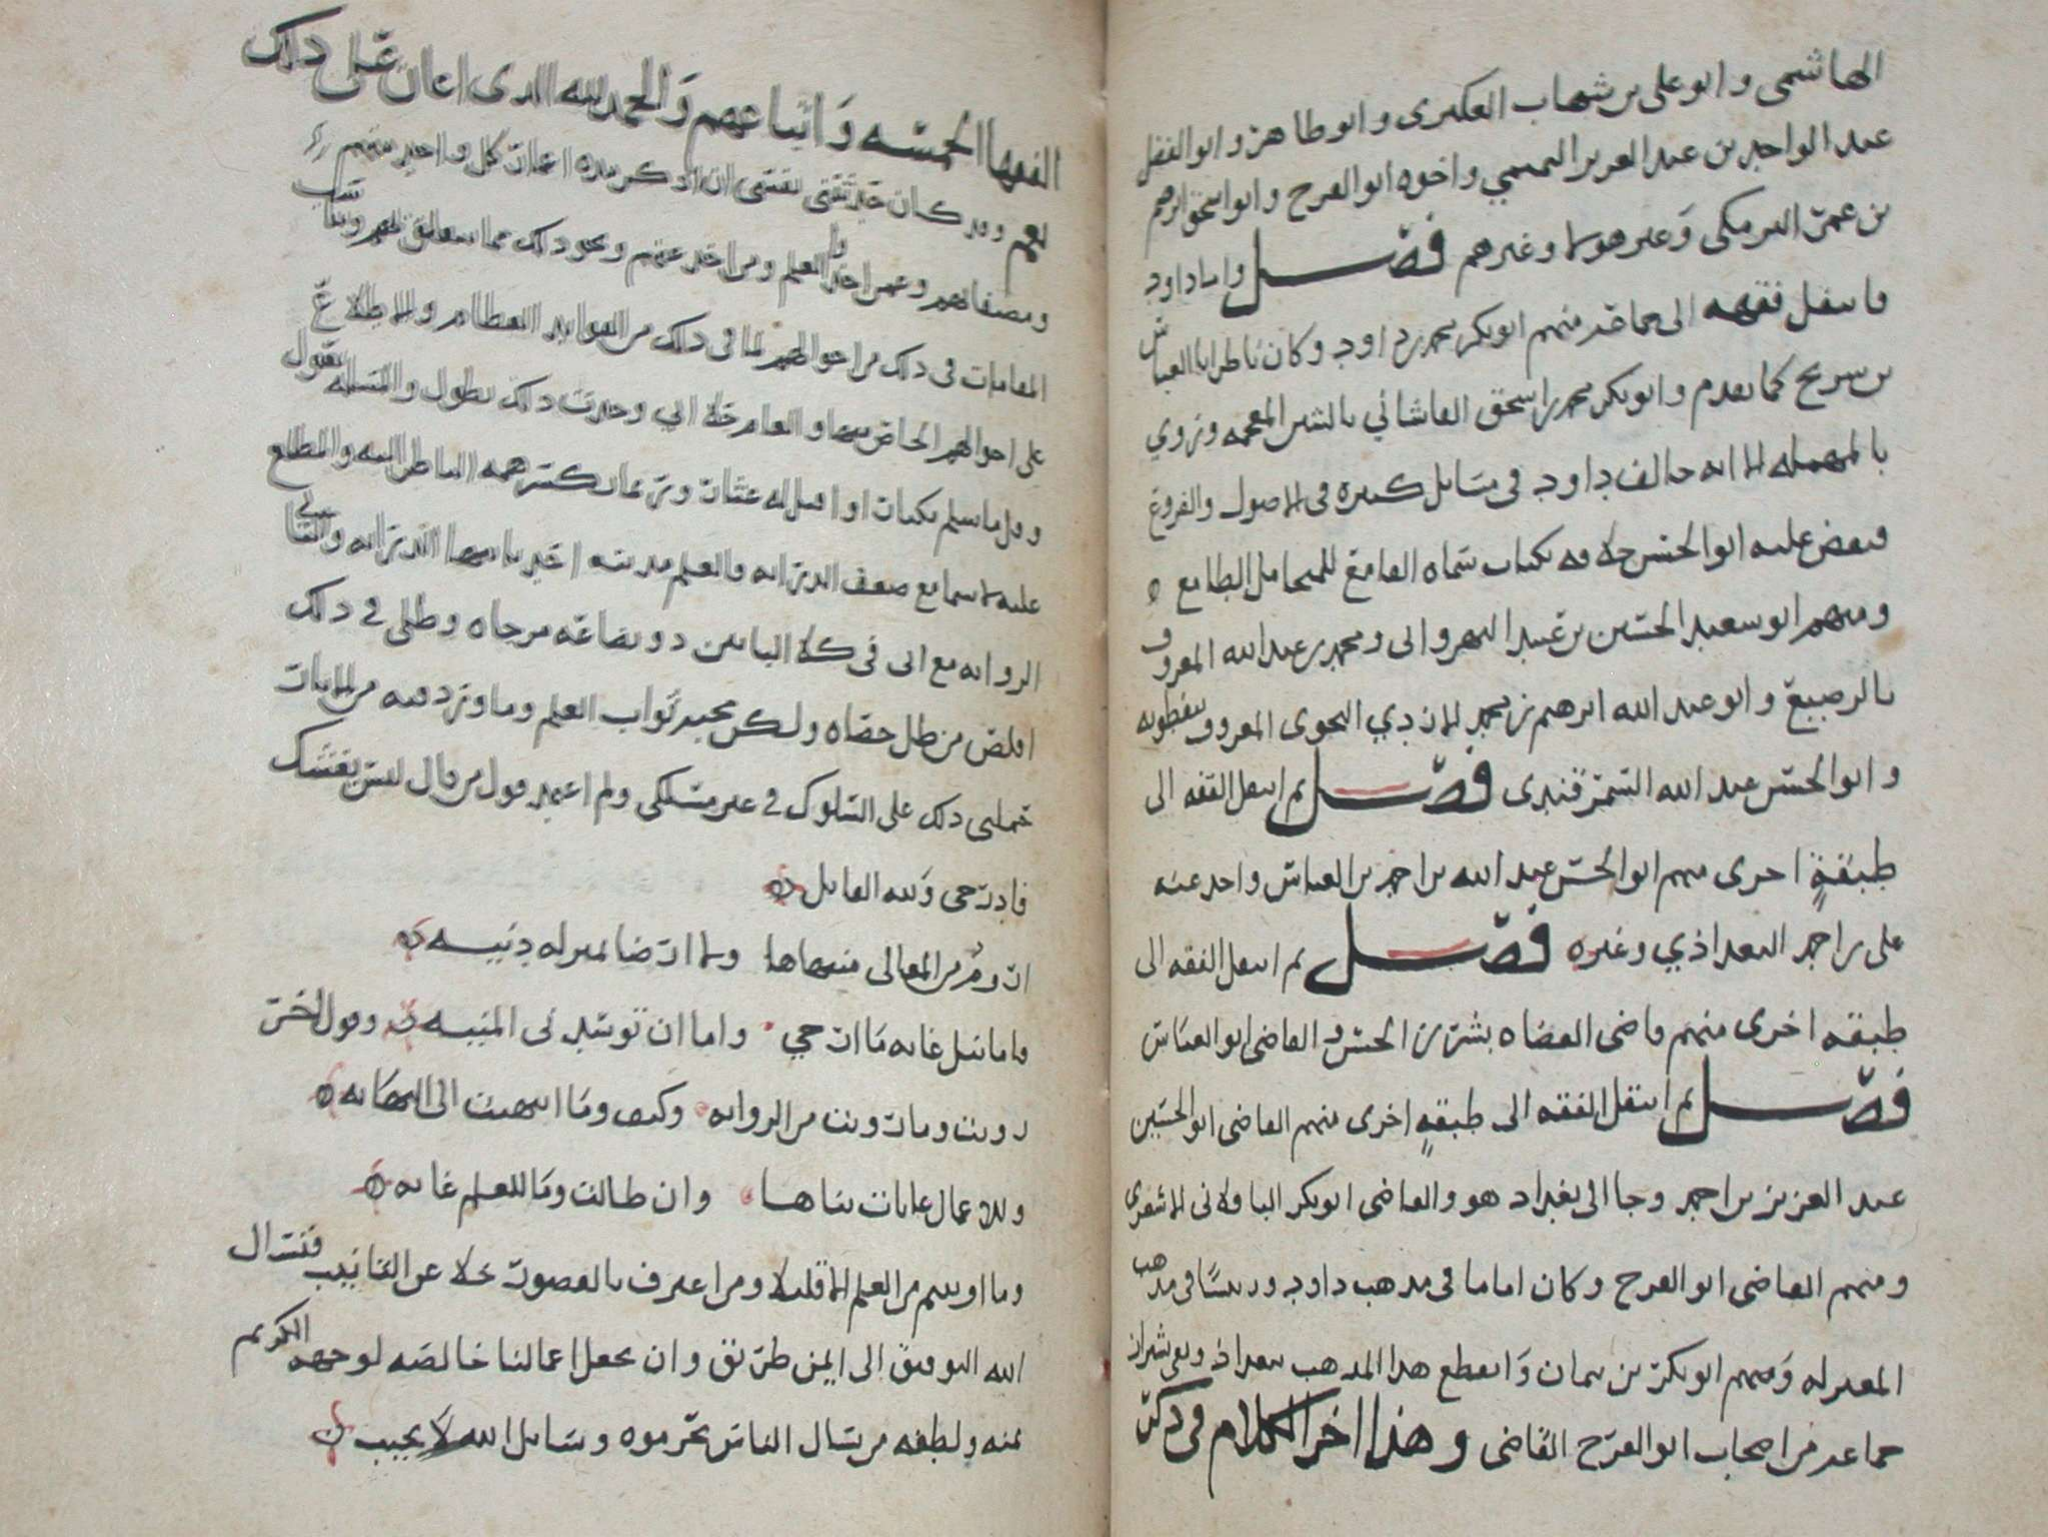 الهاشمي وابو علي بن شهاب العكبري وابو طاهر وابو الفضل
عبد الواحد بن عبد العزيز التميمي واخوه ابو الفرج وابو اسحق ابرهيم
بن عمر البرمكي وغير هولا وغيرهم فصل واما داود
فانتقل فقهه الى جماعة منهم ابو بكر محمد بن داود وكان يناظر ابا العباس
بن سريج كما تقدم وابو بكر محمد بن اسحق القاشاني بالشين المعجمه وروي
بالمهمله الا انه خالف داود في مسايل كثيره في الاصول والفروع
ونقض عليه ابو الحسن خلافه بكتاب سماه القامع للمتحامل الطامع
ومنهم ابو سعيد الحسين بن عبيد النهرواني ومحمد بن عبد الله المعروف
بالرصيع وابو عبد الله ابرهيم بن محمد الازدي النحوي المعروف بنفطويه
وابو الحسن عبد الله السمرقندي فصل ثم انتقل الفقه الى
طبقة اخرى منهم ابو الحسن عبد الله بن احمد بن العباس واخذ عنه
علي بن احمد البغداذي وغيره فصل ثم انتقل الفقه الى
طبقه اخرى منهم قاضي القضاه بشر بن الحسن والقاضي ابو العباس
فصل ثم انتقل الفقه الى طبقة اخرى منهم القاضي ابو الحسين
عبد العزيز بن احمد وجا الى بغداد هو والقاضي ابو بكر الباقلاني الاشعري
ومنهم القاضي ابو الفرج وكان اماما في مذهب داود ورييسا في مذهب
المعتزله ومنهم ابو بكر بن بنان وانقطع هذا المذهب ببغداد وبقي بشيراز
جماعة من اصحاب ابو الفرج القاضي وهذا اخر الكلام في ذكر
الفقها الخمسه واتباعهم والحمد لله الذي اعان على ذلك
نعم وقد كان حدثتني نفسي ان اذكر مده اعمار كل واحد منهم
ومصنفاتهم وعمن اخذوا العلم ومن اخذ عنهم ونحو ذلك مما يتعلق بهم
المقامات في ذلك من احوالهم لما في ذلك من الفوايد العظام والاطلاع
على احوالهم الخاص منها والعام خلا اني وجدت ذلك يطول والنسله تقول
وقل ما سلم مكثار او اقيل له عثار همه الناظر اليه والمطلع
عليه لا سيما مع ضعف الدرايه والعلم مدينه احد بابيها الدرايه والثاني
الروايه مع اني في كلا البابين ذو بضاعه مزجاه وظلي في ذلك
اقلص من ظل حصاه ولكن بحبه ثواب العلم وما ورد فيه من الايات
حملني ذلك على السلوك في غير مسلكي ولم اعتمد قول من قال ليس بعشك
فادرجي ولله القايل
ان ورم من المعالي منتهاها ولا ارضا بمنزله دنيه
فاما نيل غايه ما ارجي واما ان توسدني المنيه وقول الاخر
رويت وما رويت من الروايه وكيف وما انتهيت الى النهايه
وللاعمال غايات تناها وان طالت وما للعلم غايه
وما اوتيتم من العلم الا قليلا ومن اعترف بالقصور خلا عن التانيب فنسال
الله التوفيق الى ايمن طريق وان يجعل اعمالنا خالصه لوجهه الكريم
بمنه ولطفه من يسال الناس يحرموه وسايل الله لا يخيب